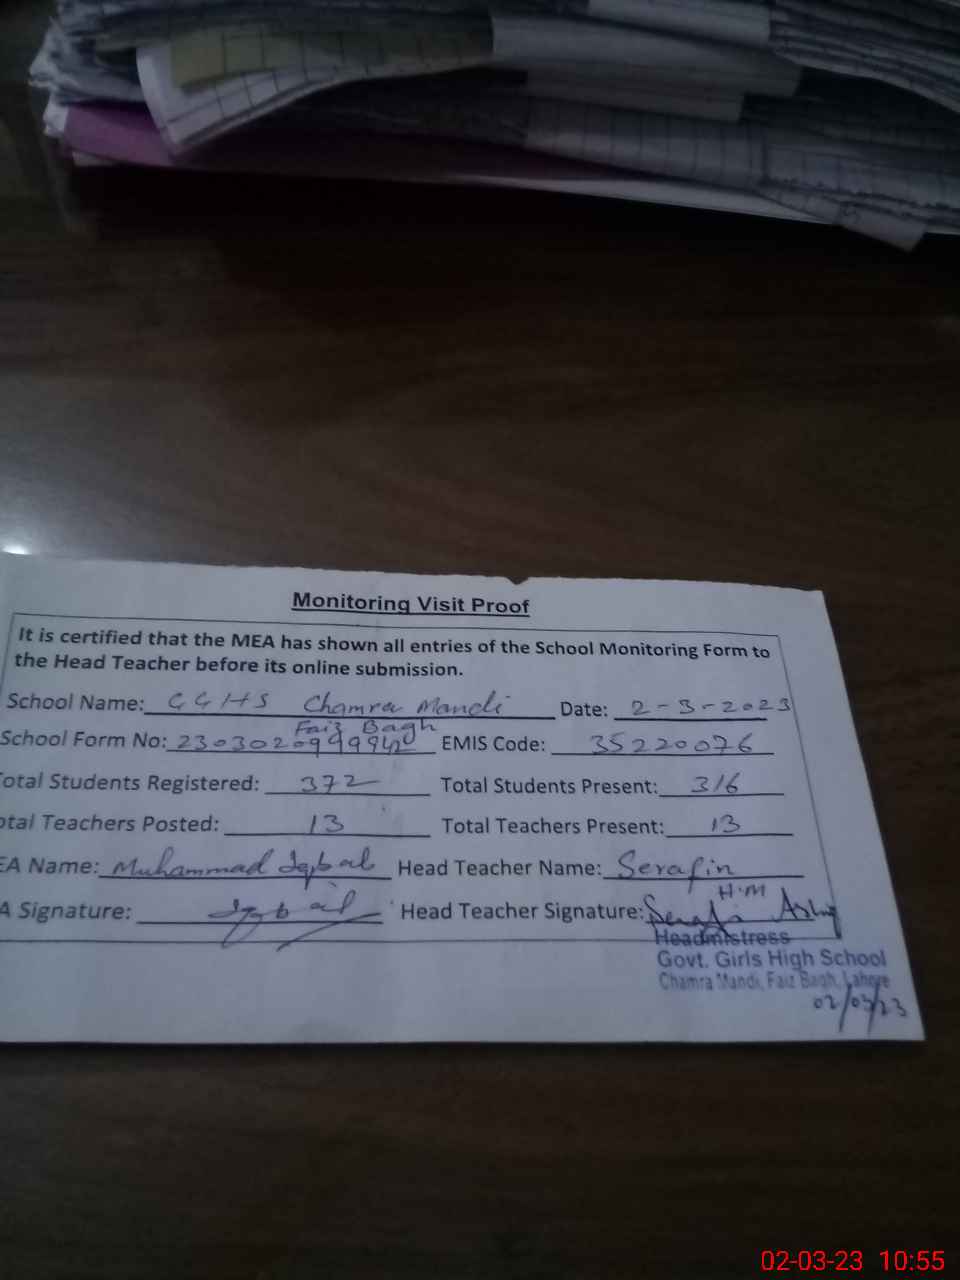 Monitoring Visit Proof
It is certified that the MEA has shown all entries of the School Monitoring Form to
the Head Teacher before its online submission.
School Name: GGHS Chamra Mandi Date: 2-3-2023
Faiz Bagh
School Form No: EMIS Code: 35220076
otal Students Registered: 372 Total Students Present: 316
otal Teachers Posted: 13 Total Teachers Present: 13
EA Name: Muhammad Iqbal Head Teacher Name: Serafin
H.M
A Signature: Iqbal Head Teacher Signature: Serafin
Headmistress
Govt. Girls High School
Chamra Mandi, Faiz Bagh, Lahore
02/03/23
02-03-23 10:55